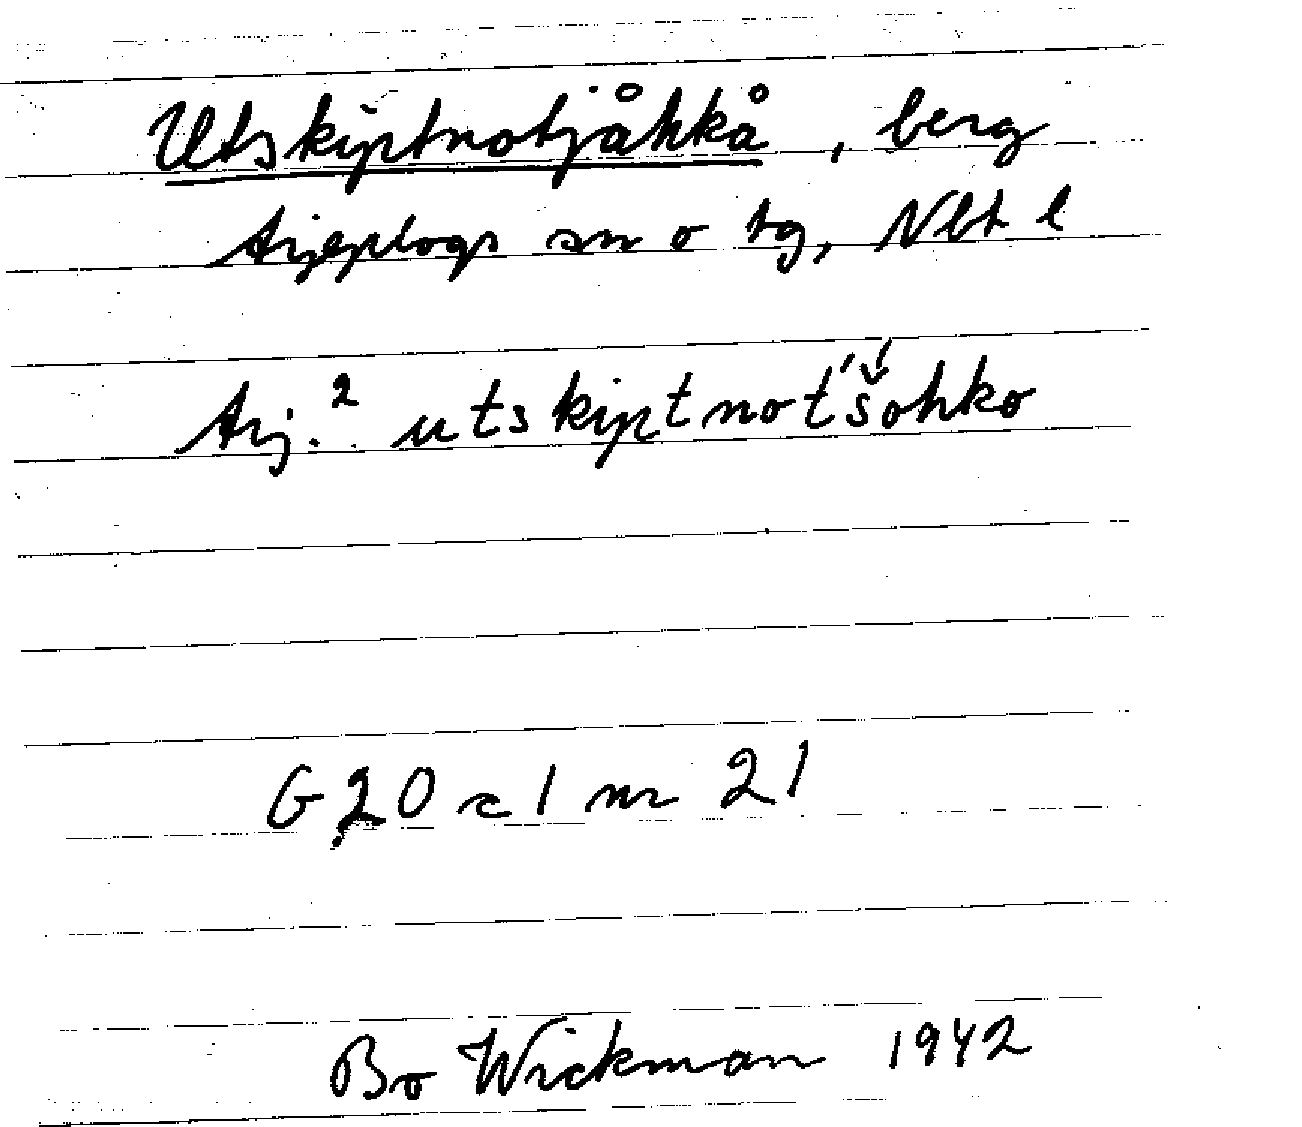 Utskiptnotjåhkå, berg
Arjeplogs sn o tg, Nbt l
Arj.² utskiptnot́šohko
G 20 c 1 nr 21
Bo Wickman 1942